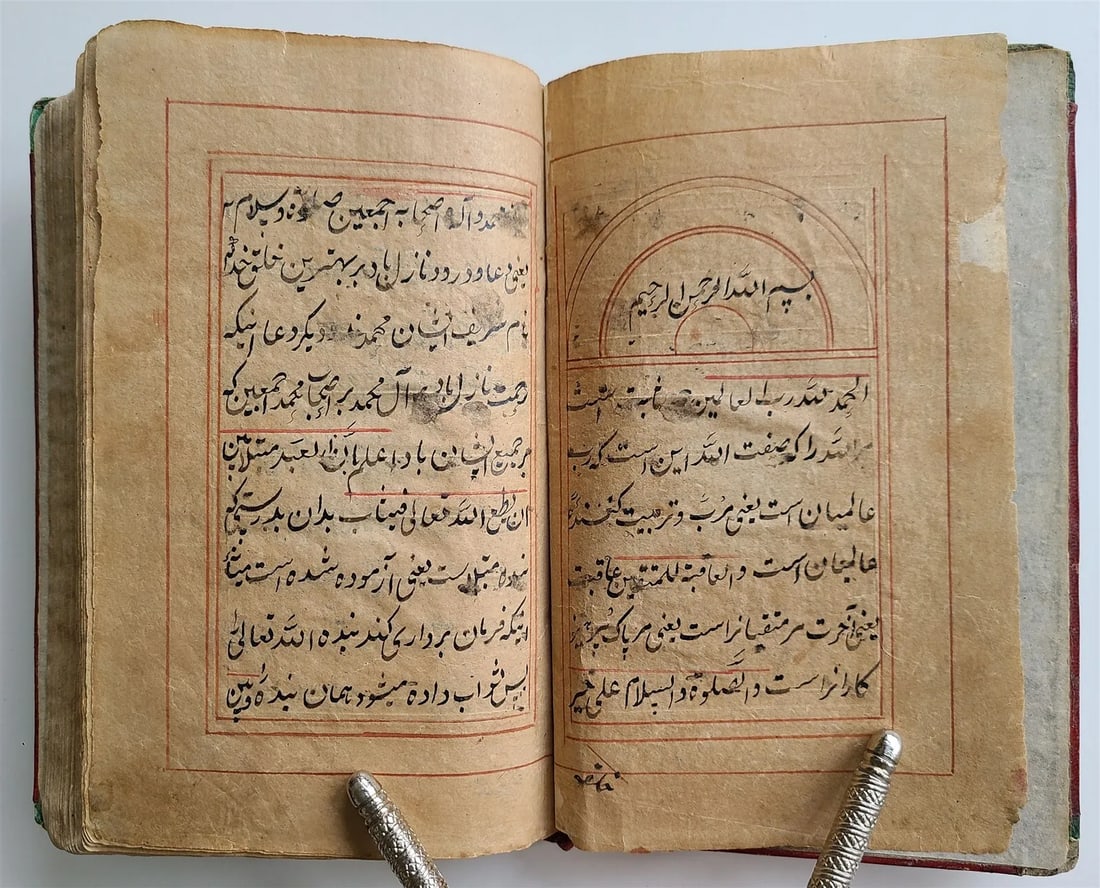 بسم الله الرحمن الرحیم
الحمد لله رب العالمین صفت
مر الله را که صفت الله این است که رب
عالمیان است یعنی مرب و تربیت کننده
عالمیان است والعاقبة للمتقین عاقبت
یعنی آخرت مر متقیانراست یعنی مر پاک
کارانراست والصلوة والسلام علی خیر
خلقه
محمد و آله اصحابه اجمعین صلوة و سلام
یعنی دعا و درود نازل باد بر بهترین خلق خدای
نام شریف ایشان محمد دیکر دعا اینکه
رحمت نازل باد بر آل محمد بر اصحاب محمد اجمعین که
بر جمیع ایشان باد اعلم بان العبد مبتلا بین
ان یطیع الله تعالی فیثاب بدان بدرستیکه
بنده مبتلا است یعنی آزموده شده است میانه
اینکه فرمان برداری کند بنده الله تعالی
پس ثواب داده میشود همان بنده و بین